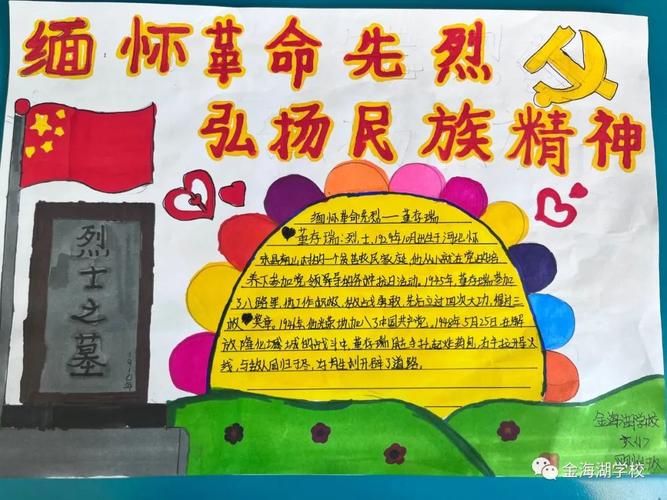 缅怀革命先烈
弘扬民族精神
缅怀革命先烈——董存瑞
董存瑞:烈士,1929年10月出生于河北怀
来县南山堡村的一个贫苦农民家庭,他从小就在党的培
养下参加党领导的各种抗日活动。1945年,董存瑞参加
了八路军,他工作积极,做战勇敢,先后立过四次大功,得过三
枚奖章。1947年,他光荣地加入了中国共产党。1948年5月25日,在解
放隆化城的战斗中,董存瑞用左手托起炸药包,右手拉开导火
线,与敌人同归于尽,为胜利开辟了道路。
烈士之墓
金海湖学校
金海湖学校